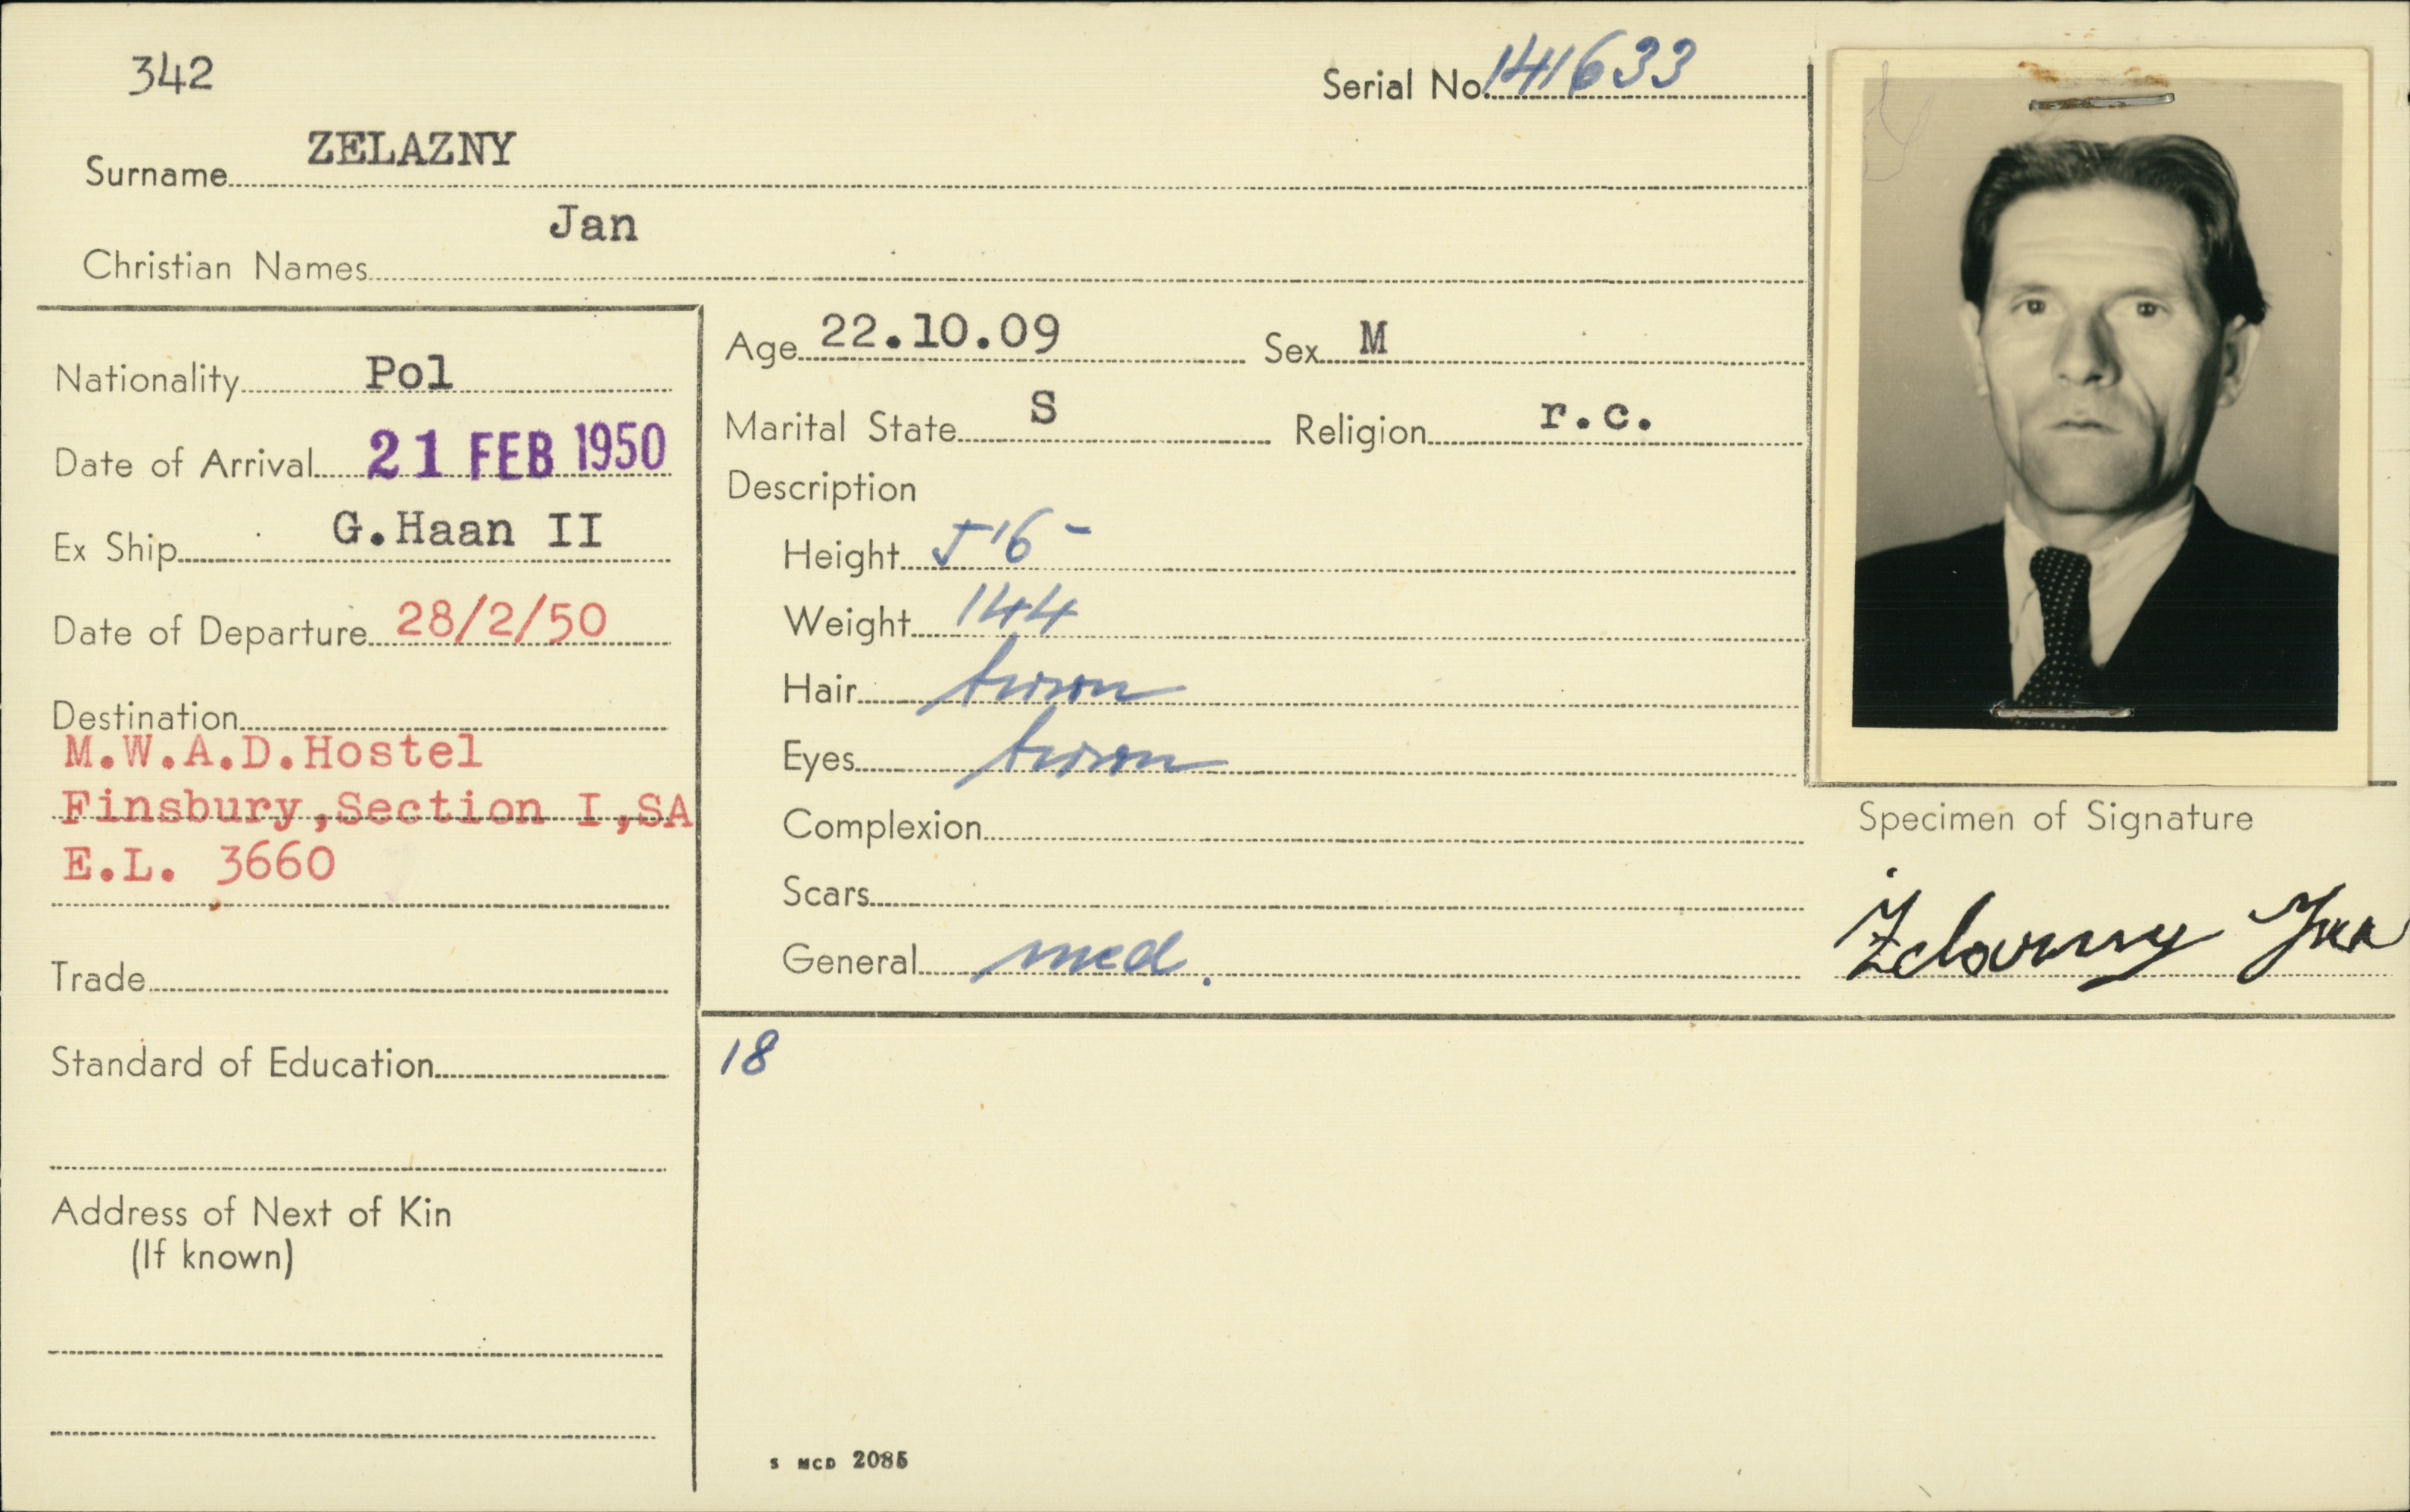 342
Serial No. 141633
Surname ZELAZNY
Christian Names Jan
Nationality Pol
Date of Arrival 21 FEB 1950
Ex Ship G.Haan II
Date of Departure 28/2/50
Destination
M.W.A.D.Hostel
Finsbury,Section I,SA
E.L. 3660
Trade
Standard of Education
Address of Next of Kin
(If known)
Age 22.10.09 Sex M
Marital State S Religion r.c.
Description
Height 5'6-
Weight 144
Hair brown
Eyes brown
Complexion
Scars
General med.
18
S MCD 2085
Specimen of Signature
Żelazny Jan